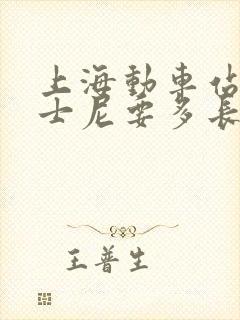 上海動車佔
士尼要多長
王普生